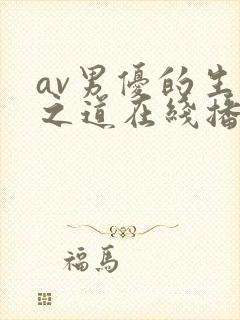 av男優的生
之道在綫播
福馬